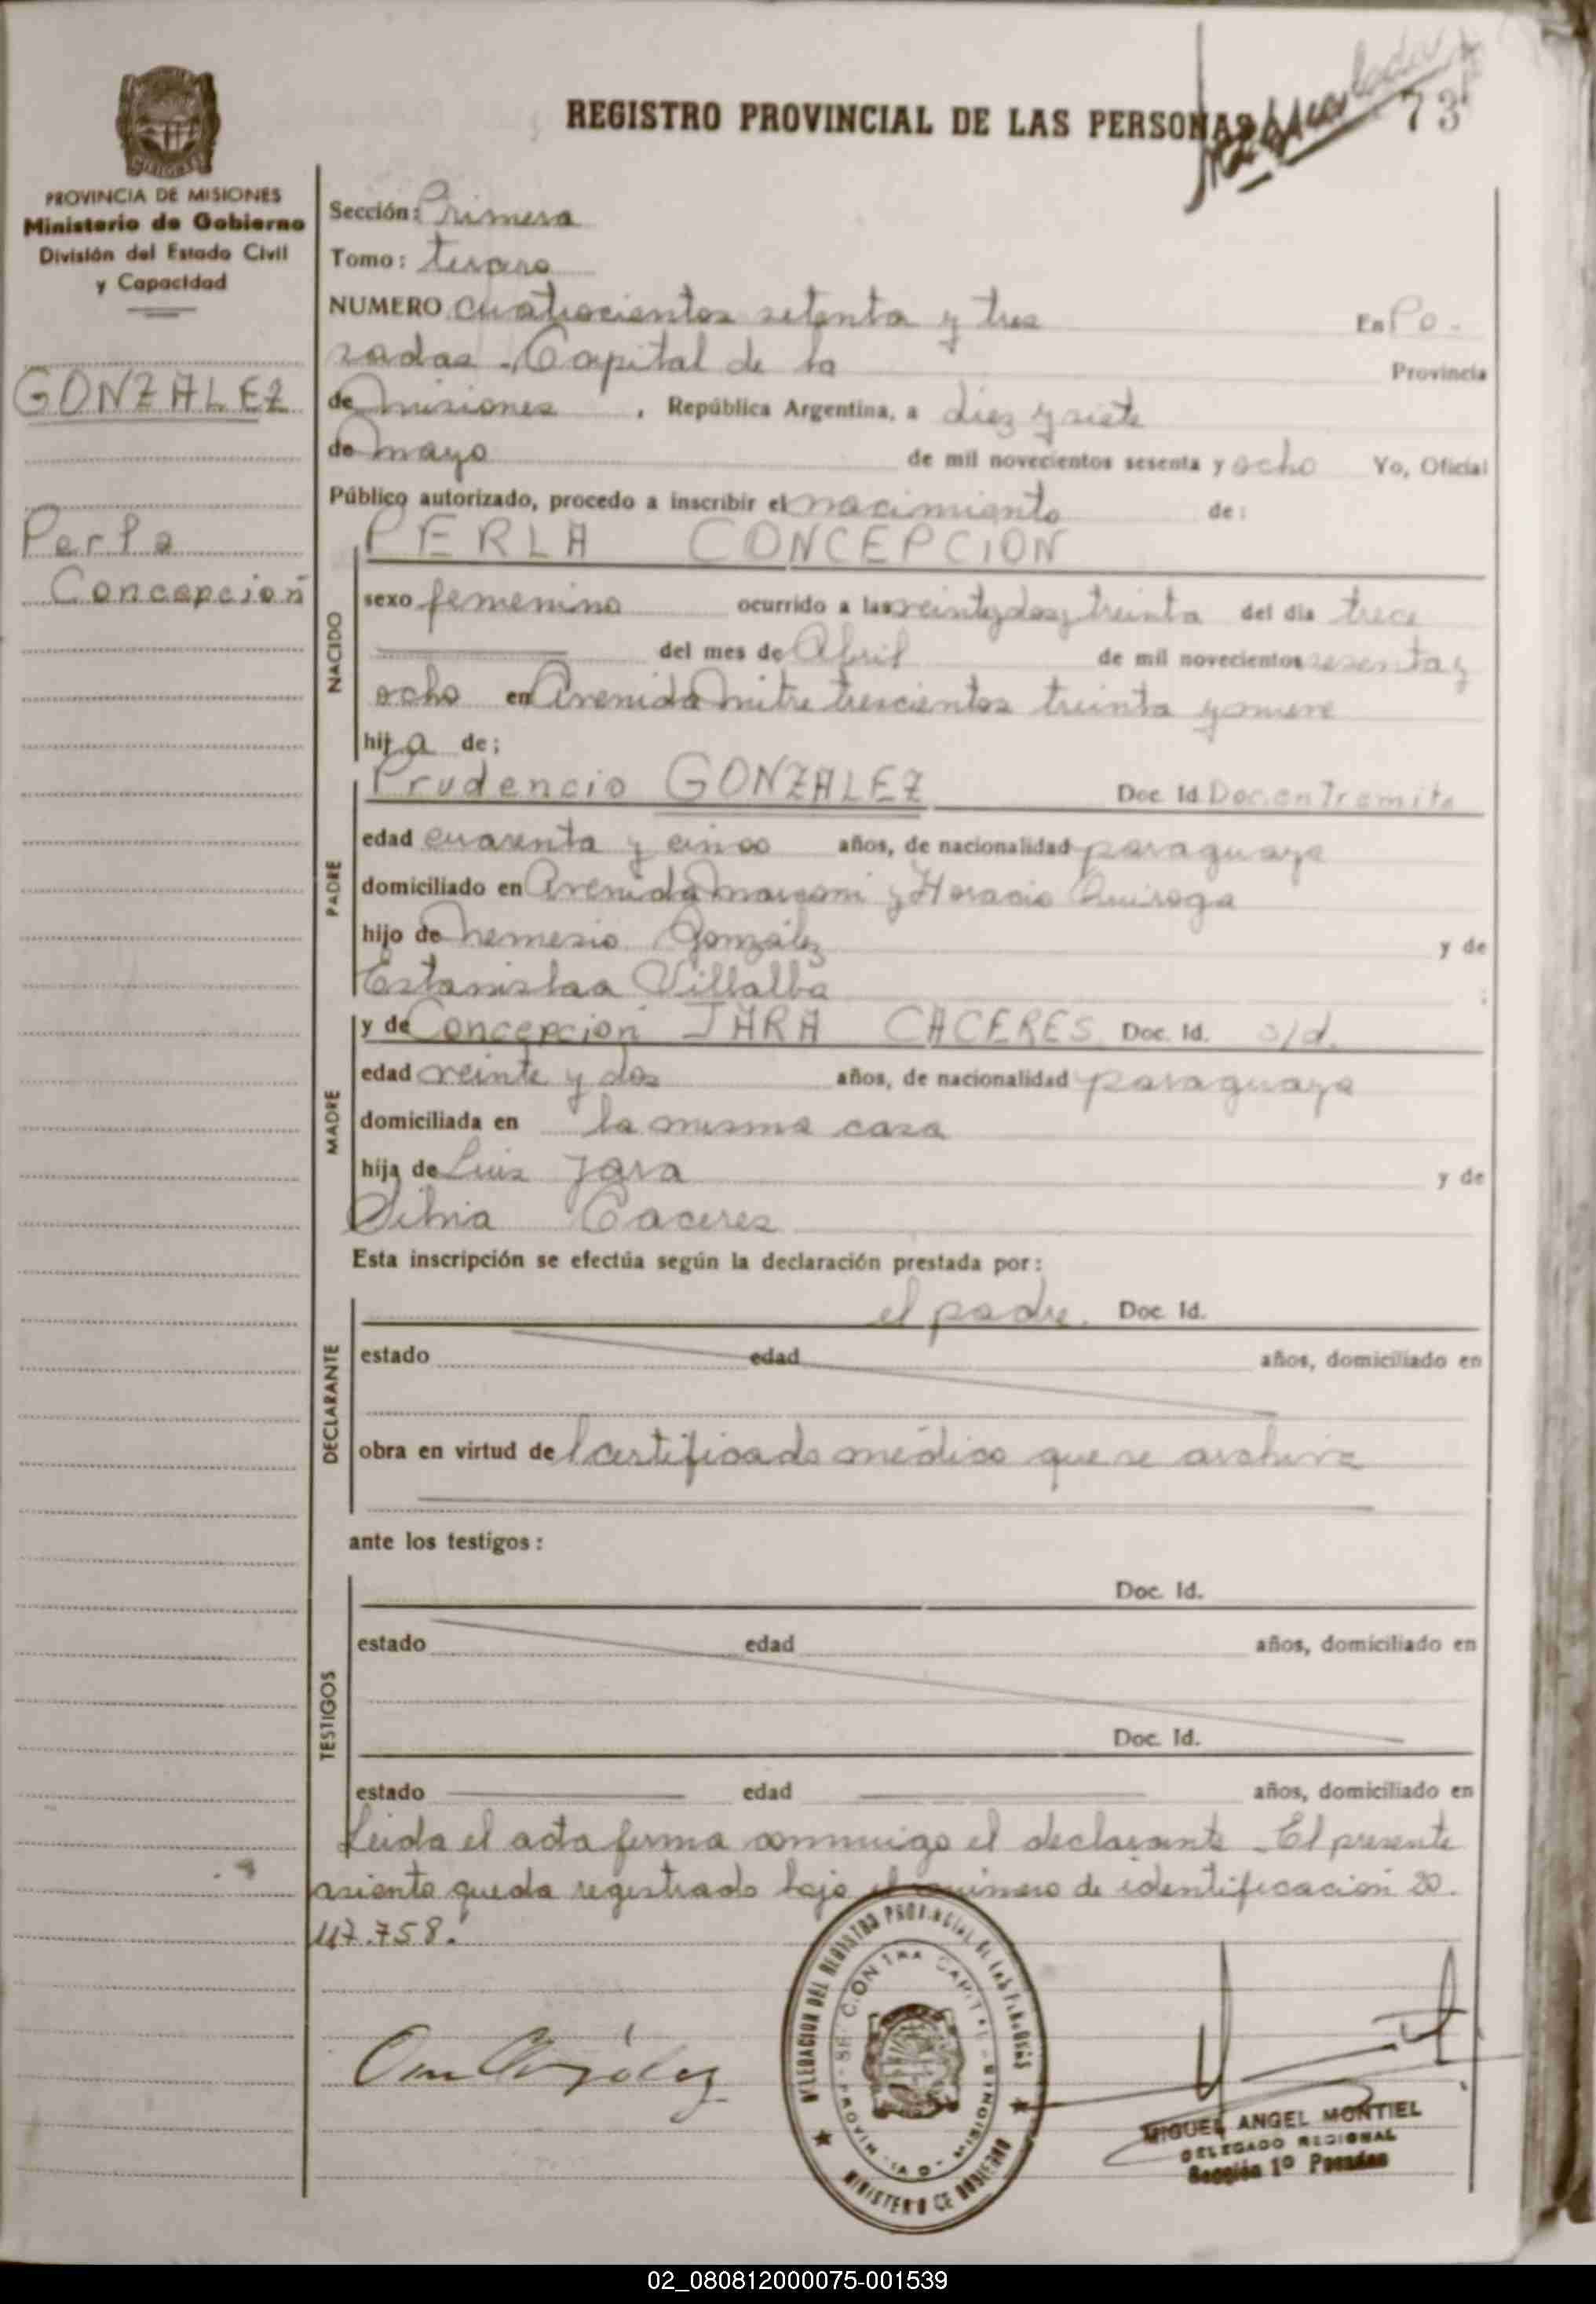 REGISTRO PROVINCIAL DE LAS PERSONAS
73
PROVINCIA DE MISIONES
Ministerio de Gobierno
División del Estado Civil
y Capacidad
GONZALEZ
Perla
Concepción
Sección: Primera
Tomo: tercero
NUMERO cuatrocientos setenta y tres En Po-
sadas - Capital de la Provincia
de Misiones, República Argentina, a diez y siete
de mayo de mil novecientos sesenta y ocho Yo, Oficial
Público autorizado, procedo a inscribir el nacimiento de:
NACIDO
PERLA CONCEPCION
sexo femenino ocurrido a las veintydos y treinta del día trece
del mes de Abril de mil novecientos sesenta y
ocho en Avenida Mitre trescientos treinta y nueve
hija de:
PADRE
Prudencio GONZALEZ Doc. Id. Doc. en Tramite
edad cuarenta y cinco años, de nacionalidad paraguaya
domiciliado en Avenida Marconi y Horacio Quiroga
hijo de Nemesio González y de
Estanislaa Villalba ;
MADRE
y de Concepcion JARA CACERES Doc. Id. s/d.
edad veinte y dos años, de nacionalidad paraguaya
domiciliada en la misma casa
hija de Luis Jara y de
Silvia Caceres
Esta inscripción se efectúa según la declaración prestada por:
DECLARANTE
el padre. Doc. Id.
estado edad años, domiciliado en
obra en virtud de l certificado médico que se archiva
ante los testigos:
TESTIGOS
Doc. Id.
estado edad años, domiciliado en
Doc. Id.
estado edad años, domiciliado en
Leida el acta firma conmigo el declarante - El presente
asiento queda registrado bajo el número de identificación 20.
117.758.
DELEGACION DEL REGISTRO PROVINCIAL DE LAS PERSONAS
MINISTERIO DE GOBIERNO
MIGUEL ANGEL MONTIEL
DELEGADO REGIONAL
Sección 1º Posadas
02_080812000075-001539